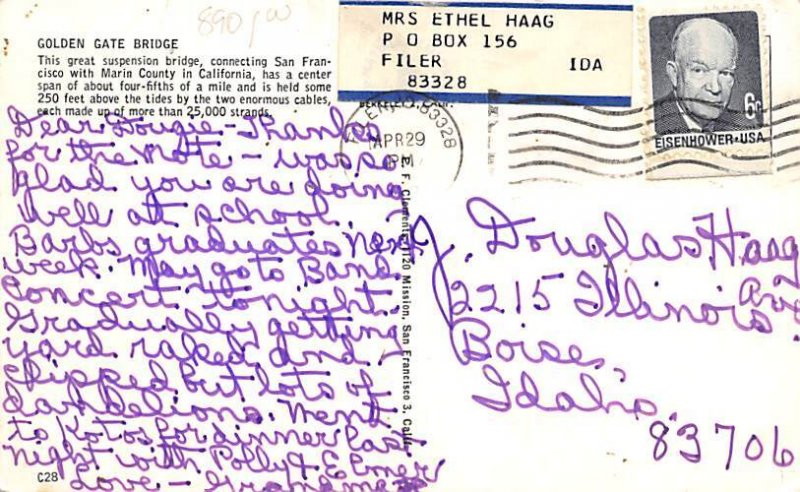 890/00
GOLDEN GATE BRIDGE
This great suspension bridge, connecting San Fran-
cisco with Marin County in California, has a center
span of about four-fifths of a mile and is held some
250 feet above the tides by the two enormous cables,
each made up of more than 25,000 strands.
MRS ETHEL HAAG
P O BOX 156
FILER IDA
83328
BERKELEY, CALIF.
83328
APR 29
6¢
EISENHOWER·USA
Dear Dougie - Thanks
for the note - was so
glad you are doing
well at school.
Barbs graduates next
week. May go to Band
Concert tonight.
Gradually getting
yard raked and
clipped but lots of
dandelions. Went
to Kotos for dinner last
night with Polly & Elmer
Love - Grandma
E. F. Clements, 1120 Mission, San Francisco 3, Calif.
J. Douglas Haag
2215 Illinois Ave
Boise,
Idaho.
83706
C28